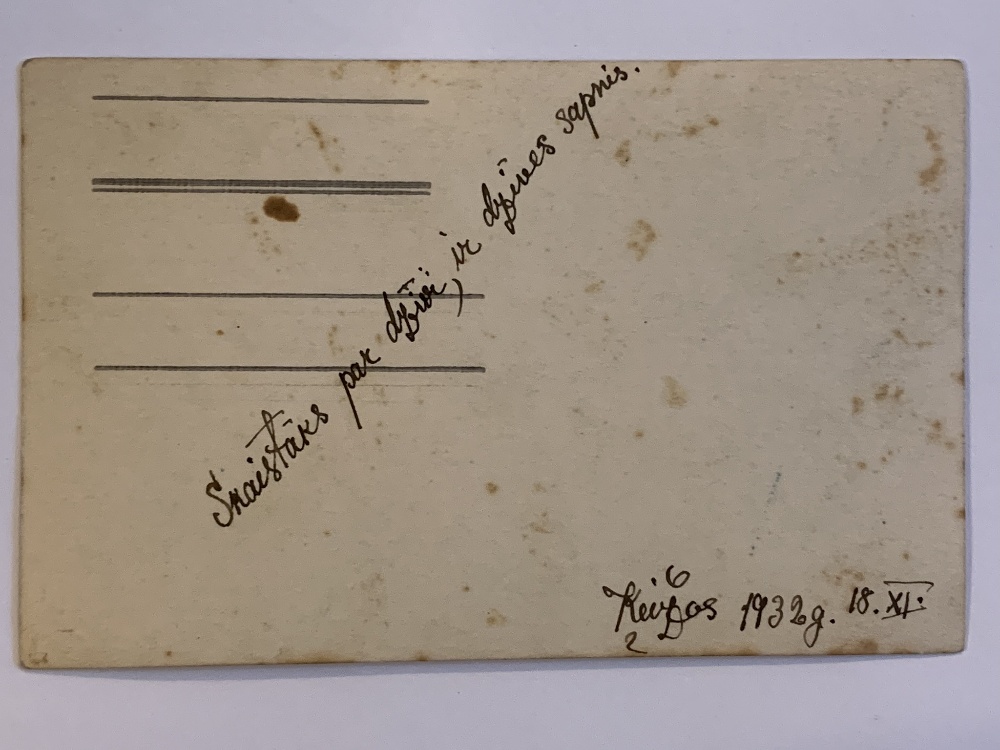 Skaistāks par dzīvi, ir dzīves sapnis.
1932g. 18. XI.